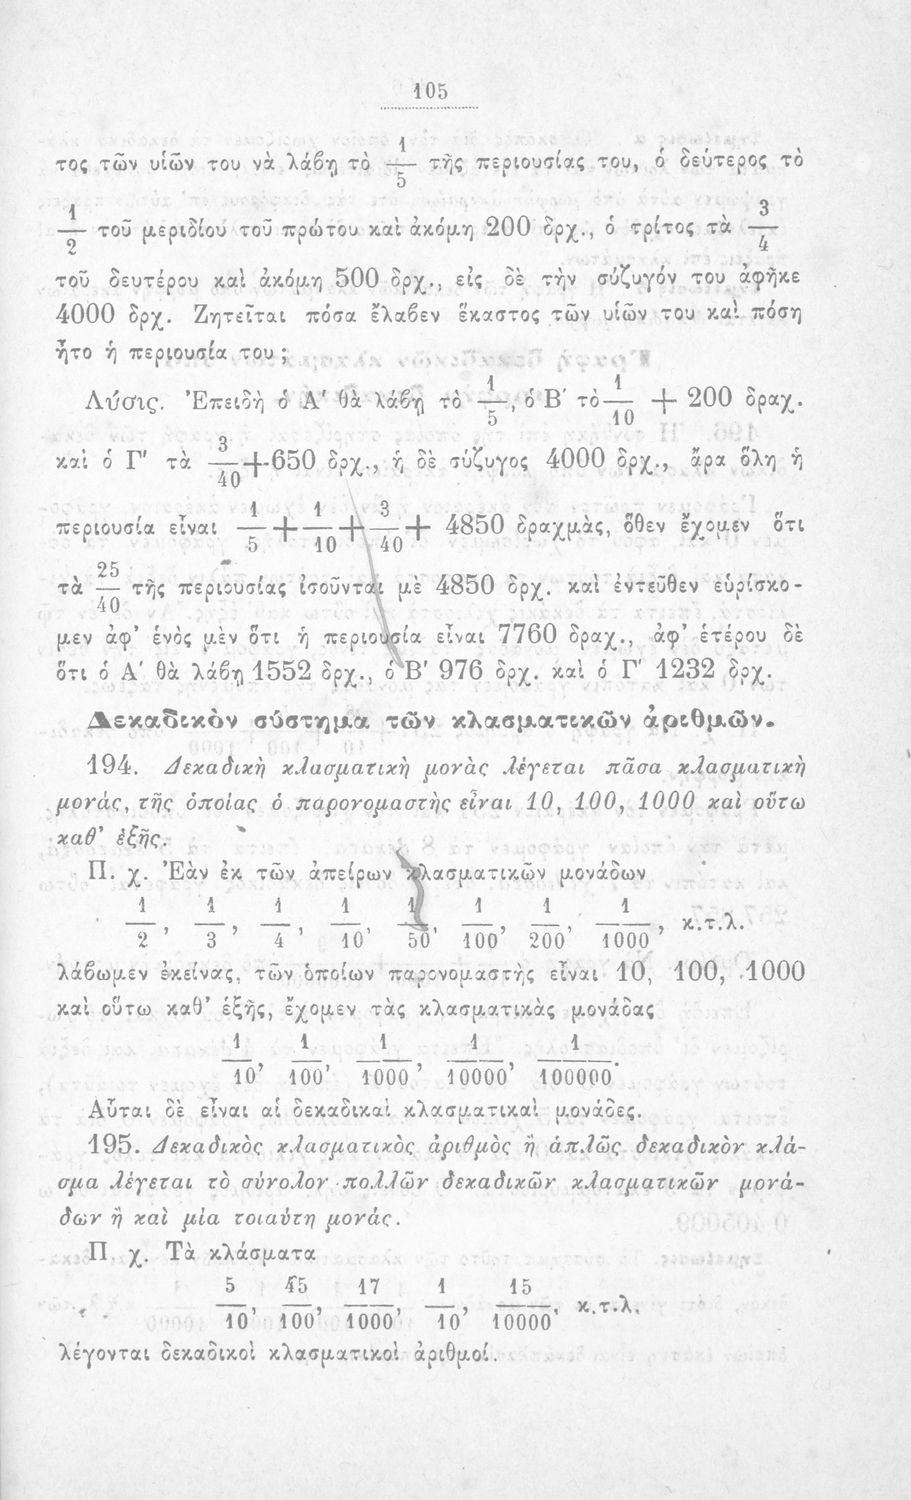 105
τος τῶν υἱῶν του νὰ λάβῃ τὸ 1/5 τῆς περιουσίας του, ὁ δεύτερος τὸ
1/2 τοῦ μεριδίου τοῦ πρώτου καὶ ἀκόμη 200 δρχ., ὁ τρίτος τὰ 3/4
τοῦ δευτέρου καὶ ἀκόμη 500 δρχ., εἰς δὲ τὴν σύζυγόν του ἀφῆκε
4000 δρχ. Ζητεῖται πόσα ἔλαβεν ἕκαστος τῶν υἱῶν του καὶ πόση
ἦτο ἡ περιουσία του ;
Λύσις. Ἐπειδὴ ὁ Α′ θὰ λάβῃ τὸ 1/5, ὁ Β′ τὸ 1/10 + 200 δραχ.
καὶ ὁ Γ′ τὰ 3/40 + 650 δρχ., ἡ δὲ σύζυγος 4000 δρχ., ἄρα ὅλη ἡ
περιουσία εἶναι 1/5 + 1/10 + 3/40 + 4850 δραχμὰς, ὅθεν ἔχομεν ὅτι
τὰ 25/40 τῆς περιουσίας ἰσοῦνται μὲ 4850 δρχ. καὶ ἐντεῦθεν εὑρίσκο-
μεν ἀφ’ ἑνὸς μὲν ὅτι ἡ περιουσία εἶναι 7760 δραχ., ἀφ’ ἑτέρου δὲ
ὅτι ὁ Α′ θὰ λάβῃ 1552 δρχ., ὁ Β′ 976 δρχ. καὶ ὁ Γ′ 1232 δρχ.
Δεκαδικὸν σύστημα τῶν κλασματικῶν ἀριθμῶν.
194. Δεκαδικὴ κλασματικὴ μονὰς λέγεται πᾶσα κλασματικὴ
μονάς, τῆς ὁποίας ὁ παρονομαστὴς εἶναι 10, 100, 1000 καὶ οὕτω
καθ’ ἑξῆς.
Π. χ. Ἐὰν ἐκ τῶν ἀπείρων κλασματικῶν μονάδων
1/2, 1/3, 1/4, 1/10, 1/50, 1/100, 1/200, 1/1000, κ.τ.λ.
λάβωμεν ἐκείνας, τῶν ὁποίων παρονομαστὴς εἶναι 10, 100, 1000
καὶ οὕτω καθ’ ἑξῆς, ἔχομεν τὰς κλασματικὰς μονάδας
1/10, 1/100, 1/1000, 1/10000, 1/100000.
Αὗται δὲ εἶναι αἱ δεκαδικαὶ κλασματικαὶ μονάδες.
195. Δεκαδικὸς κλασματικὸς ἀριθμὸς ἢ ἁπλῶς δεκαδικὸν κλά-
σμα λέγεται τὸ σύνολον πολλῶν δεκαδικῶν κλασματικῶν μονά-
δων ἢ καὶ μία τοιαύτη μονάς.
Π χ. Τὰ κλάσματα
5/10, 45/100, 17/1000, 1/10, 15/10000, κ.τ.λ.
λέγονται δεκαδικοὶ κλασματικοὶ ἀριθμοί.